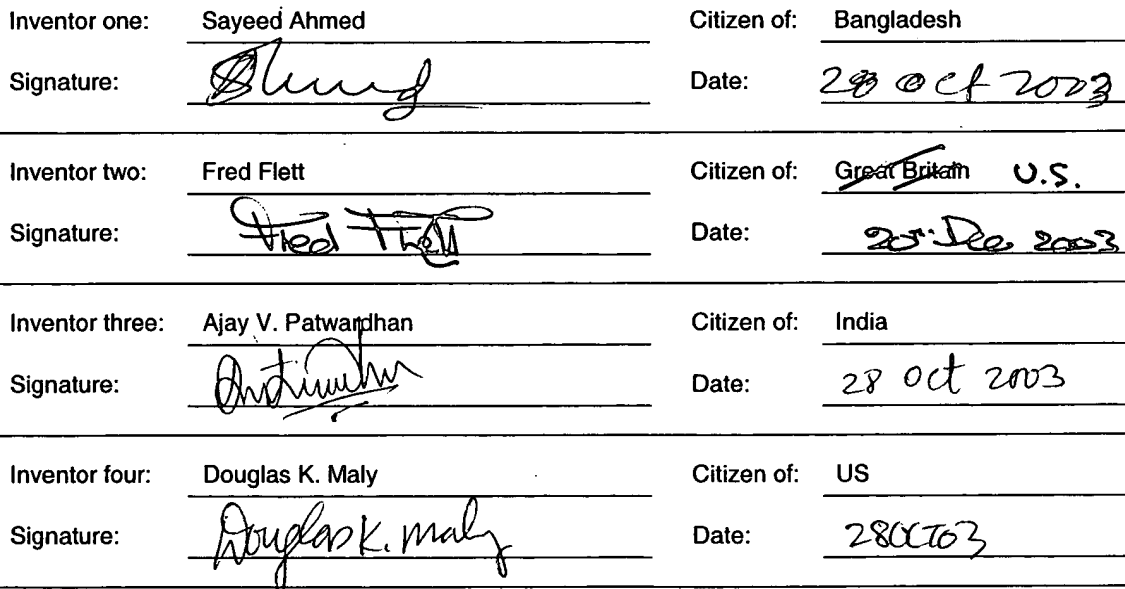 Inventor one: Sayeed Ahmed Citizen of: Bangladesh
Signature: Ahmed Date: 28 Oct 2003
Inventor two: Fred Flett Citizen of: Great Britain U.S.
Signature: Fred Flett Date: 20th Dec 2003
Inventor three: Ajay V. Patwardhan Citizen of: India
Signature: Date: 28 Oct 2003
Inventor four: Douglas K. Maly Citizen of: US
Signature: Douglas K. Maly Date: 28OCT03